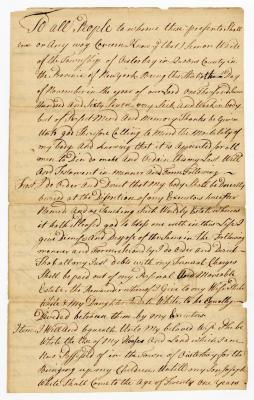 To all People to whome these presents Shall
or Any way Concern Know ye that I Simon White
of the Township of Oisterbay in Queens County in
the Province of Newyork Being this Day
of November in the year of our Lord One Thousand Seven
Hundred and Sixty Seven, very Sick and Weak in body
but of Perfect Mind and Memory Thanks be Given
Unto god Therefore Calling to Mind the Mortality of
my body And knowing that it is Appointed for all
men to Die do make and Ordain this my Last Will
And Testament in manner and Form Following
First I do Order and Direct that my body Shall be Decently
buried at the Discretion of my Executors hereafter
Named And as Touching Such Worldly Estate wherein
it hath Pleased god to bless me with in this Life I
give Devise And Dispose of the Same in the Following
manner and Form I do Order and Direct
That all my Just debts with my Funeral Charges
Shall be paid out of my Personal and Moveable
Estate the Remainder I Give to my Wife Phebe
White & my Daughter White to be Equally
Divided between them by my Executors
Item I Will and bequeath Unto My beloved Wife Phebe
White the Use of My House and Land which I am
Now Possessed of in the Town of Oisterbay for the
Bringing up my Children Untill my Son Joseph
White Shall Come to the Age of Twenty one Years